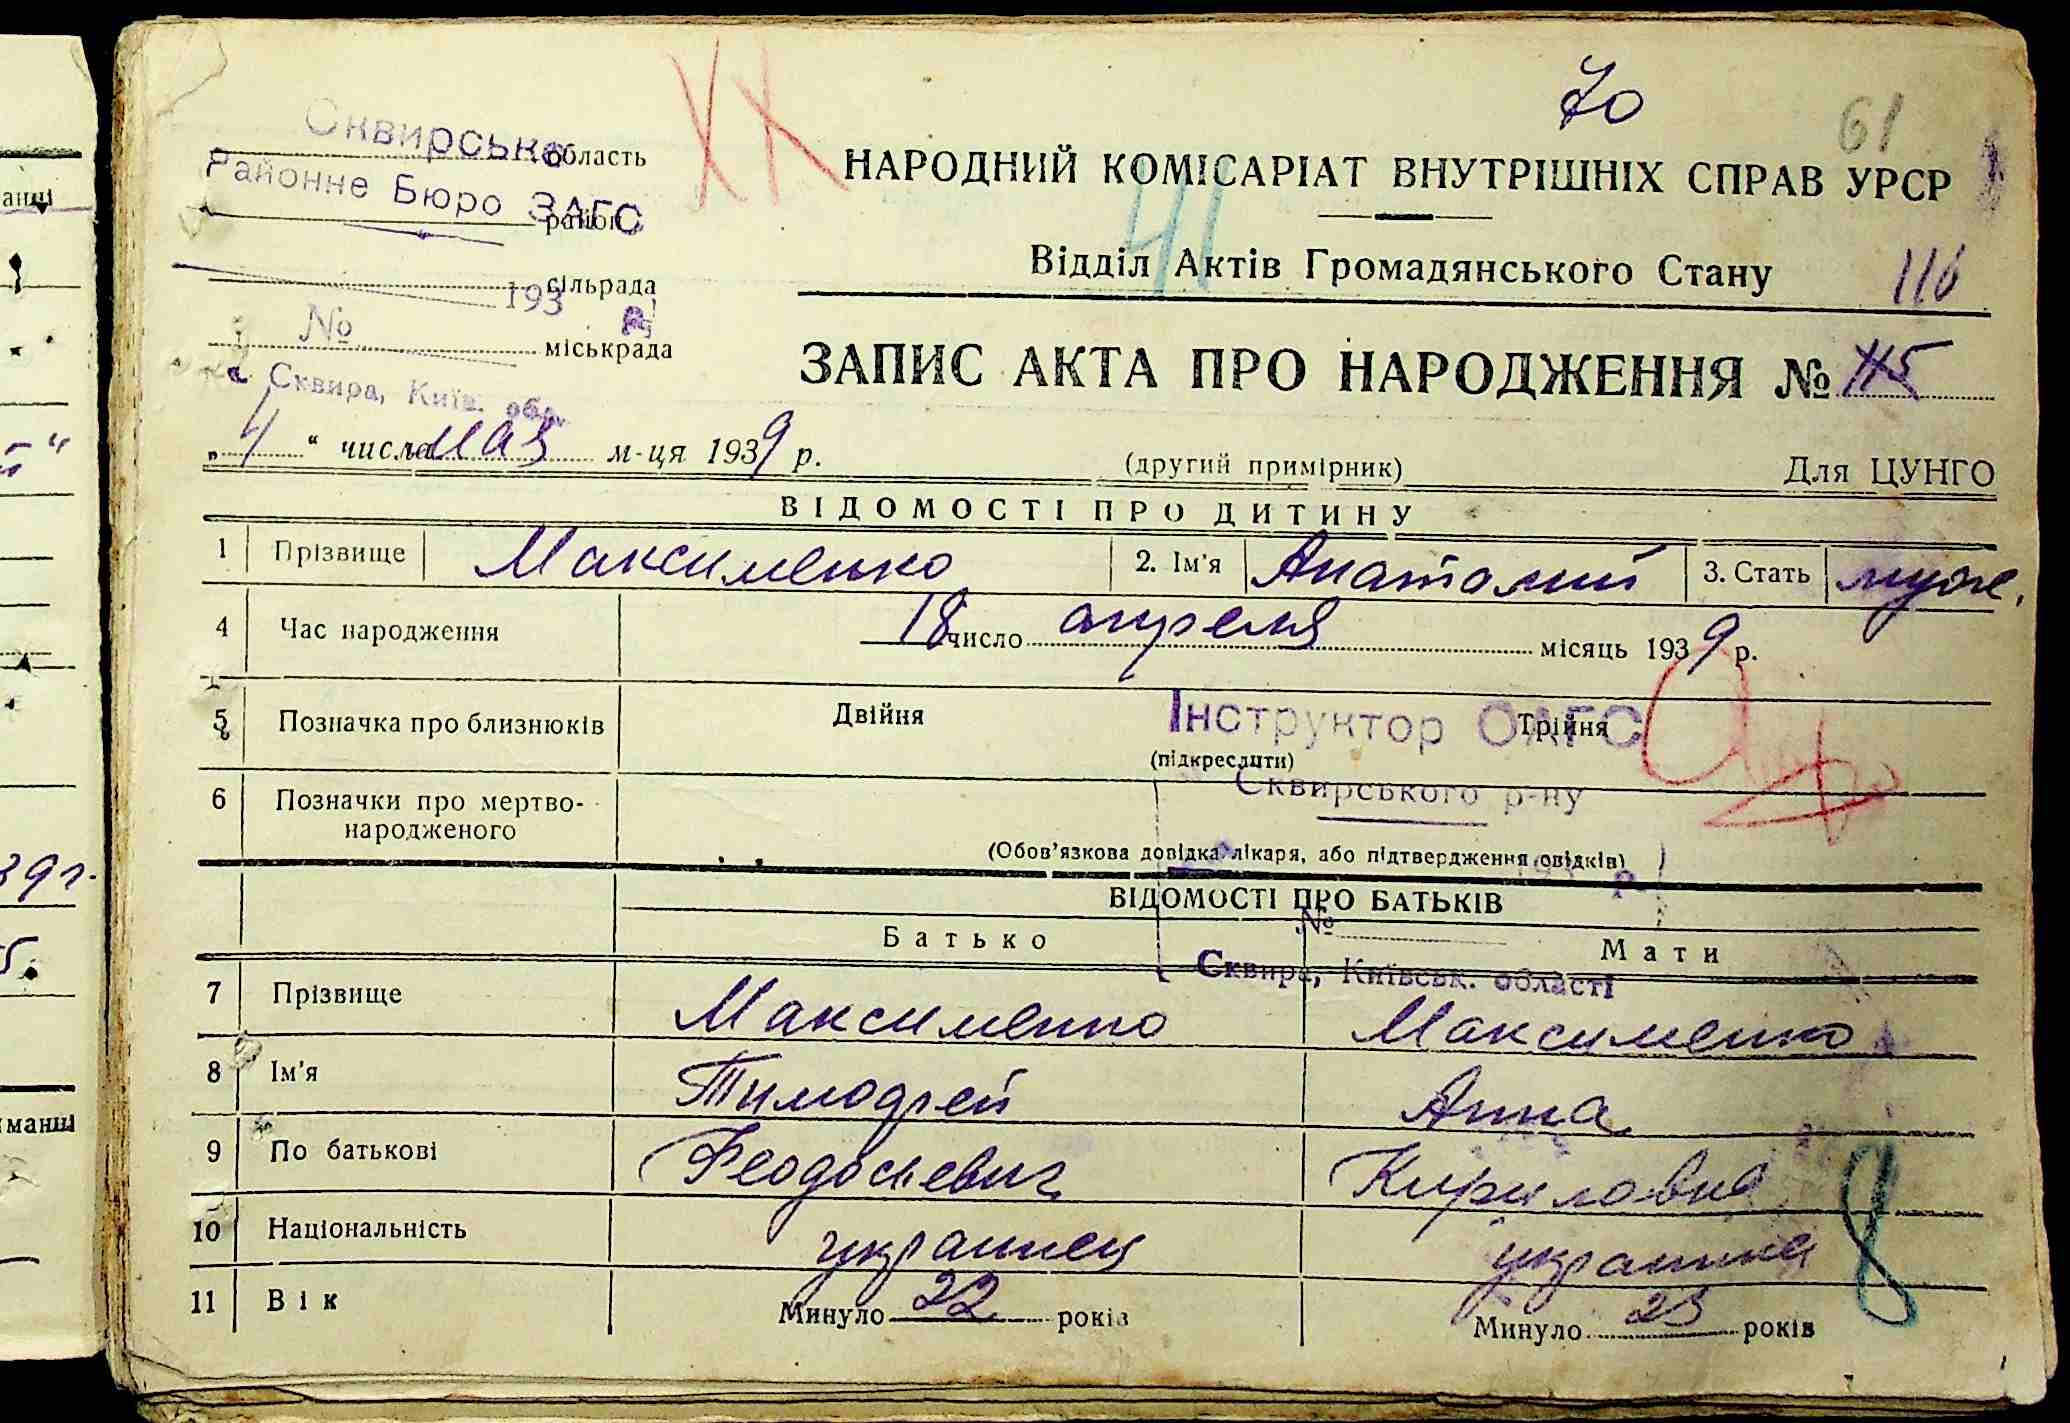 70
61
Сквирське область
Районне Бюро ЗАГС
район
НАРОДНИЙ КОМІСАРІАТ ВНУТРІШНІХ СПРАВ УРСР
41
Відділ Актів Громадянського Стану
116
сільрада
193 р.
№
міськрада
ЗАПИС АКТА ПРО НАРОДЖЕННЯ № 115
Сквира, Київ. обл.
„4“ числа мая м-ця 1939 р.
(другий примірник)
Для ЦУНГО
ВІДОМОСТІ ПРО ДИТИНУ
1 Прізвище Максименко 2. Ім'я Анатолий 3. Стать муж.
4 Час народження 18 число апреля місяць 1939 р.
5 Позначка про близнюків Двійня Трійня
(підкреслити)
Інструктор ОАГС
Сквирського р-ну
6 Позначки про мертво-
народженого
(Обов'язкова довідка лікаря, або підтвердження свідків)
ВІДОМОСТІ ПРО БАТЬКІВ
№
Батько Мати
Сквира, Київськ. області
7 Прізвище Максименко Максименко
8 Ім'я Тимофей Анна
9 По батькові Феодосиевич Кириловна
10 Національність украинец украинка
11 Вік Минуло 22 років Минуло 23 років
8